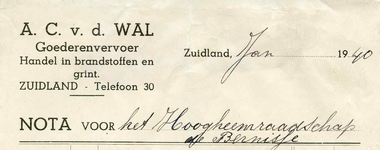 A. C. v. d. WAL
Goederenvervoer
Handel in brandstoffen en
grint.
ZUIDLAND - Telefoon 30
Zuidland, Jan 1940
NOTA VOOR het Hoogheemraadschap
de Bernisse